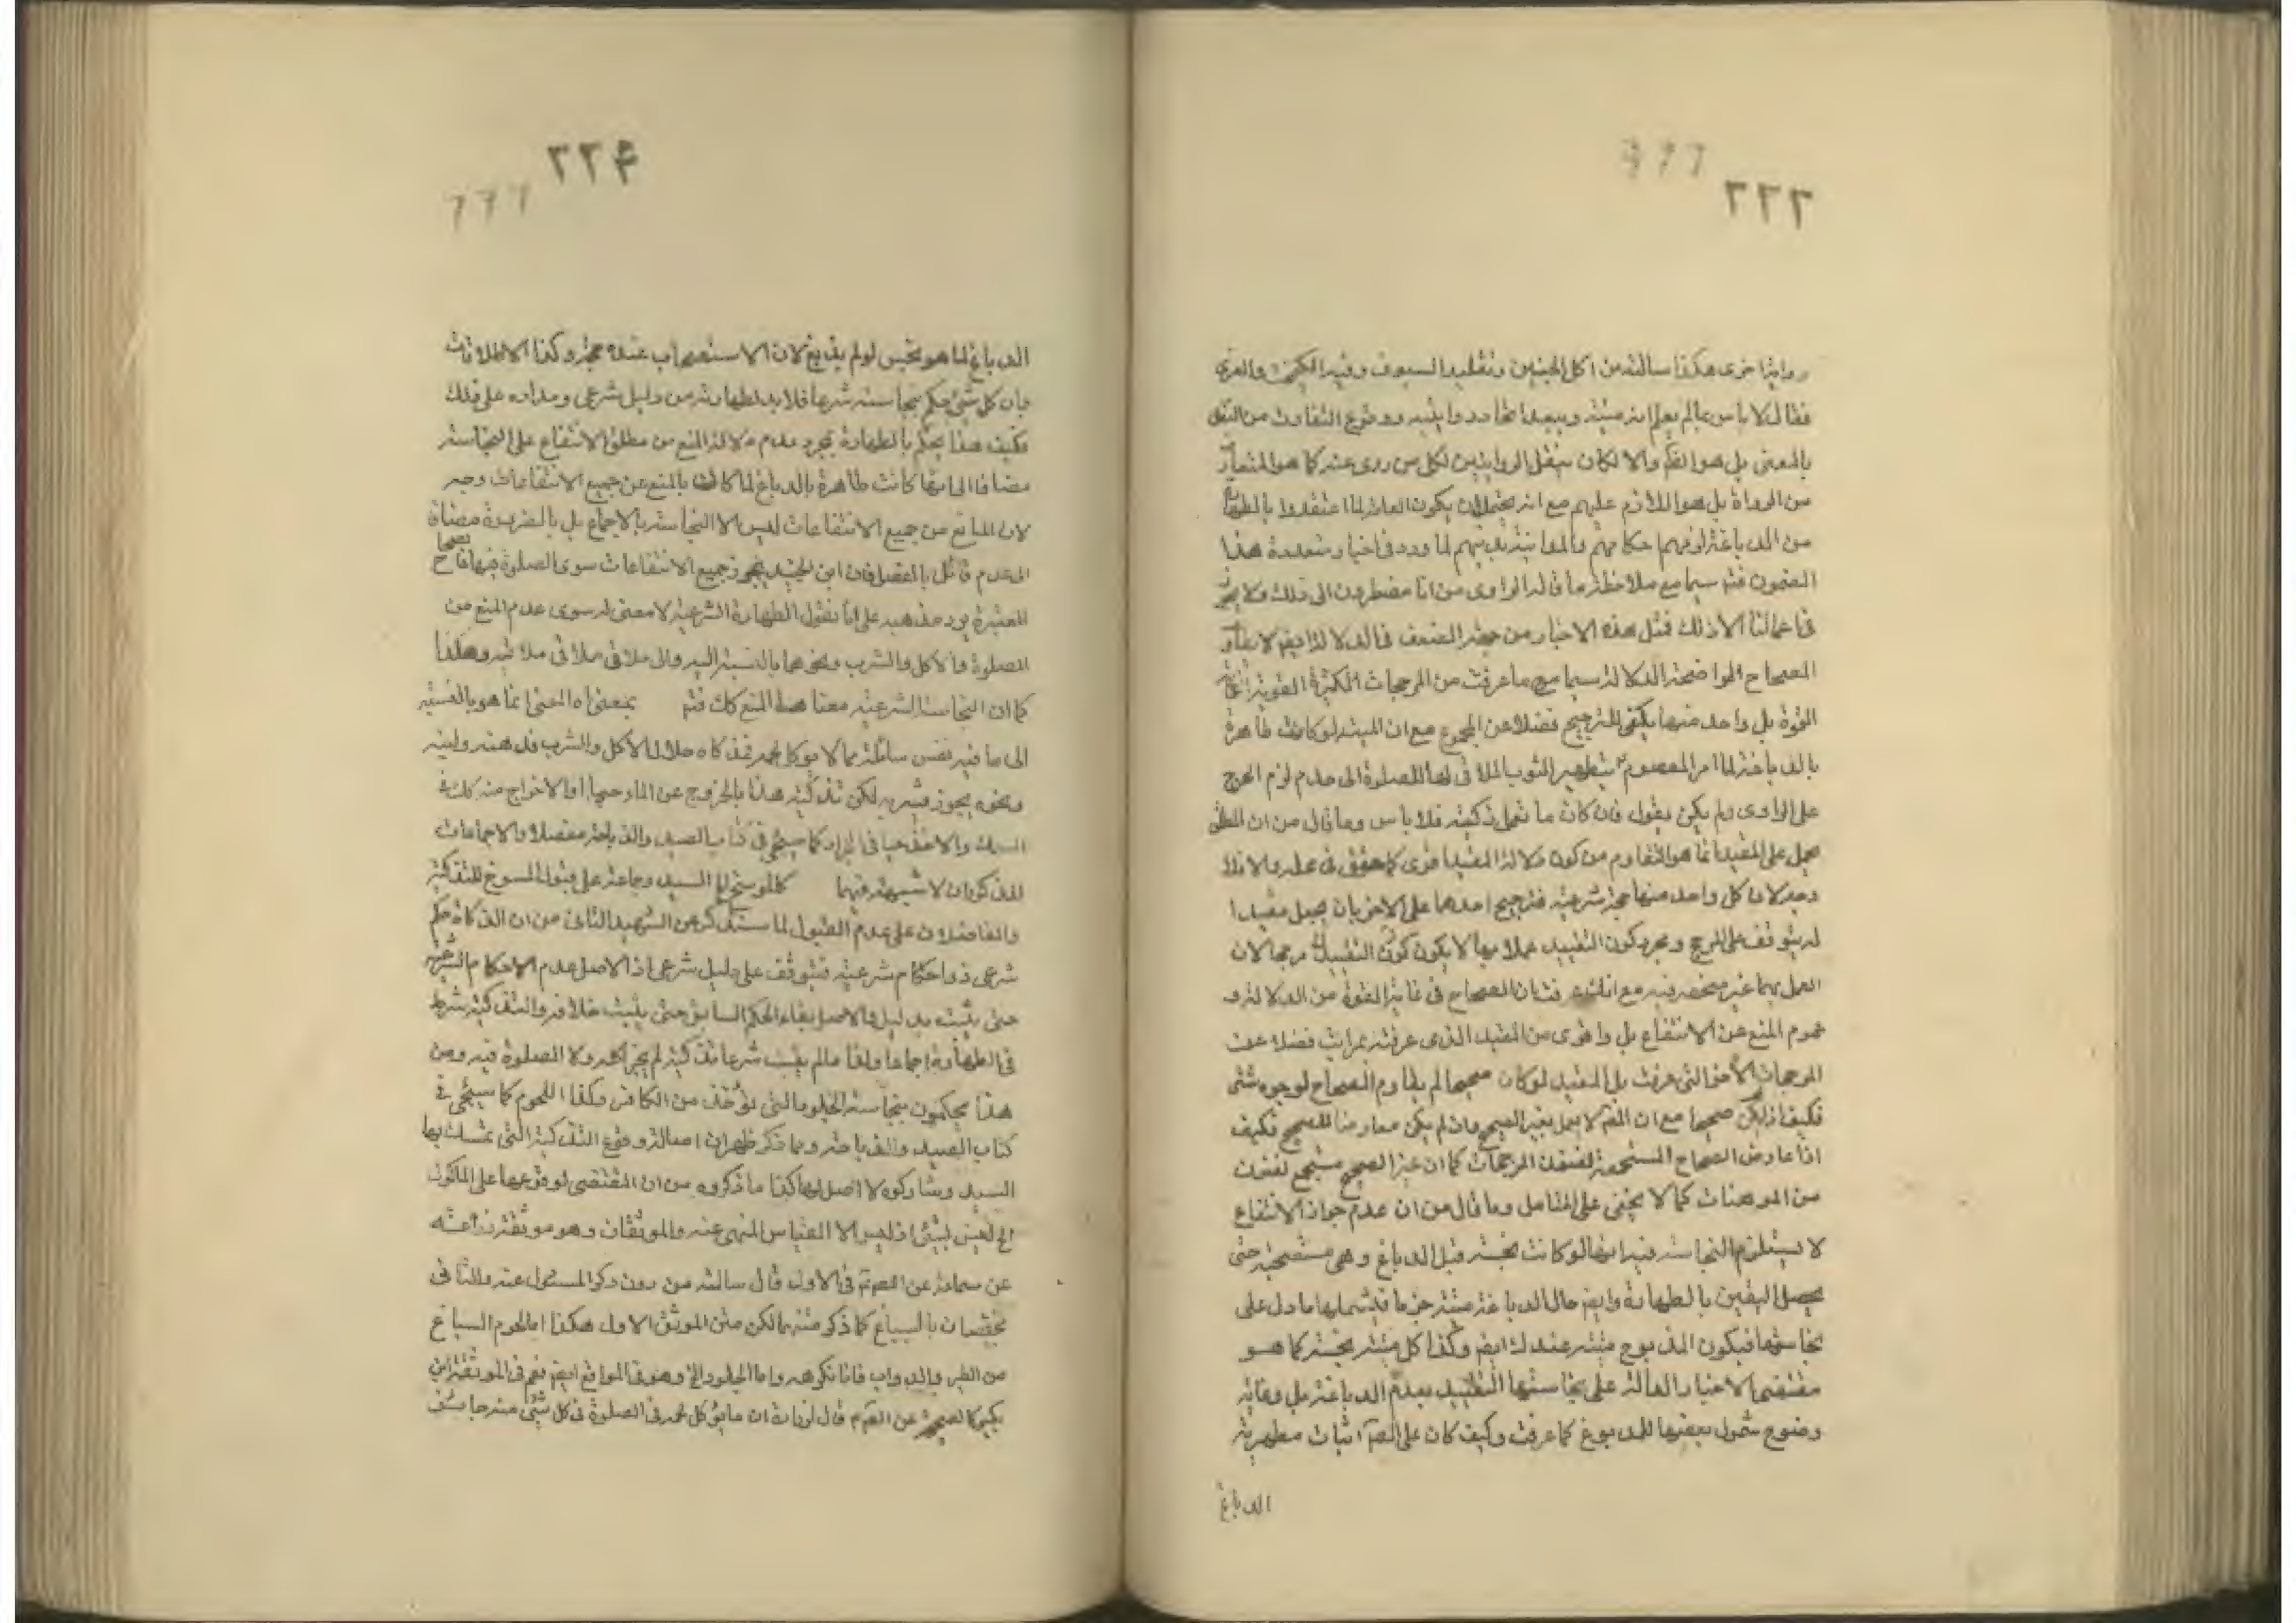 ٢٢٣
رواية اخرى هكذا سالته من اكل الجبن وتقليد السيوف وفيه الكيمخت والغرى
فقال لا باس مالم يعلم انه ميتة ويبعد اتحاد روايتيه ووقوع التفاوت من النقل
بالمعنى بل هو الفكر والا لكان ينقل الروايتين لكل من روى عنه كما هو المتعارف
من الرواة بل هو اللازم عليهم مع انه يحتمل ان يكون العامة لما اعتقدوا بالطهارة
من الدباغة
المضمون فتم سيما مع ملاحظة ما قاله الراوى من انا مضطرون الى ذلك ولا يجوز
فى اعمالنا الا ذلك فمثل هذه الاخبار من حيث الضعف فى الدلالة ايض لا يقاوم
الصحاح الواضحة الدلالة سيما مع ما عرفت من المرجحات الكثيرة القوية غاية
القوة بل واحد منها يكفى للترجيح فضلا عن المجموع مع ان الميتة لو كانت طاهرة
بالدباغة لما امر المعصوم ع بتطهير الثوب الملاقى لها للصلوة الى عدم لزم الحرج
على الراوى ولم يكن يقول فان كان ما تعمل ذكية فلا باس وما قال من ان المطلق
يحمل على المقيد انما هو التقاوم من كون دلالة المقيد اقوى كما حقق فى محله والا فلا
وجه لان كل واحد منها حجة شرعية فترجيح احدهما على الاخر بان يجعل مقيدا
له يتوقف على المرجح ومجرد كون التقييد عملا بهما لا يكون كون التقييد مرجحا لان
العمل بهما غير منحصر فيه مع انك عرفت ان الصحاح فى غاية القوة من الدلالة و
عموم المنع عن الانتفاع بل واقوى من المقيد الذى عرفته بمراتب فضلا عن
المرجحات الاخر التى عرفت بل المقيد لو كان صحيحا لم يقاوم الصحاح لوجوه شتى
فكيف اذا لم يكن صحيحا مع ان المص لا يعمل بغير الصحيح وان لم يكن معارضا للصحيح فكيف
اذا عارض الصحاح المستجمعة لفنون المرجحات كما ان غير الصحيح مستجمع لفنون
من الموهنات كما لا يخفى على المتامل وما قال من ان عدم جواز الانتفاع
لا يستلزم النجاسة فيه انها لو كانت نجسة قبل الدباغ وهى مستصحبة حتى
يحصل اليقين بالطهارة وايض حال الدباغة ميتة جزما فيشملها ما دل على
نجاستها فيكون المدبوغ ميتة عندك ايض وكذا كل ميتة نجسة كما هو
مقتضى الاخبار الدالة على نجاستها التقييد بعدم الدباغة بل وغاية
وضوح شمول بعضها للمدبوغ كما عرفت وكيف كان على المص اثبات مطهرية
الدباغ
٢٢۴
الدباغ لما هو نجس لو لم يدبغ لان الاستصحاب عنده حجة وكذا الاطلاقات
بان كل شئ حكم بنجاسته شرعا فلا بد لطهارته من دليل شرعى ومداره على ذلك
فكيف هذا يحكم بالطهارة بمجرد عدم دلالة المنع من مطلق الانتفاع على النجاسة
مضافا الى انها كانت طاهرة بالدباغ لما كان بالمنع عن جميع الانتفاعات وجه
لان المانع من جميع الانتفاعات ليس الا النجاسة بالاجماع بل بالضرورة مضافا
الى عدم قائل بالفصل فان ابن الجنيد يجوز جميع الانتفاعات سوى الصلوة فيها
المعتبرة يرد مذهبه على انا نقول الطهارة الشرعية لا معنى له سوى عدم المنع من
الصلوة والاكل والشرب ونحوهما بالنسبة اليه والى ملاقى ملاقى ملاقيه وهكذا
كما ان النجاسة الشرعية معنا هذا المنع كك فتم بمعنى ان المعنى انما هو بالنسبة
الى ما فيه نفس سائلة مما لا يوكل لحمه
ونحوه يجوز شربه لكن تذكية هذا بالخروج عن الماء حيا او الاخراج منه كك فى
السمك والاخذ حيا فى الجراد كما سيجئ فى كتاب الصيد والذباحة مفصلا والاجماعات
المذكوران لا شبهة فيهما السيد وجماعة على قبول المسوخ للتذكية
والفاضلان على عدم القبول لما سنذكر عن الشهيد الثانى من ان الذكاة حكم
شرعى ذو احكام شرعية فيتوقف على دليل شرعى اذ الاصل عدم الاحكام الشرعية
حتى يثبت بدليل والاصل بقاء الحكم السابق حتى يثبت خلافه والتذكية شرط
فى الطهارة اجماعا ولذا مالم يثبت شرعا تذكيته لم يجز اكله ولا الصلوة فيه ومن
هذا يحكمون بنجاسة الجلود التى تؤخذ من الكافر وكذا اللحوم كما سيجئ فى
كتاب الصيد والذباحة ومما ذكر ظهر ان اصالة وقوع التذكية التى تمسك بها
السيد وشاركوه لا اصل لها كذا ما ذكروه من ان المقتضى لوقوعها على الماكول
الخ ليس بشئ اذ ليس الا القياس المنهى عنه والموثقان وهو موثقة زرعة
عن سماعة عن الصادق ع فى الاول قال سالته من دون ذكر المسئول عنه والثانى
مختصان بالسباع كما ذكر متنهما لكن متن الموثق الاول هكذا اما لحوم السباع
من الطير والدواب فانا نكرهه واما الجلود الخ وهو فى الواقع ايض نعم فى الموثقة ابن
بكير كالصحيح عن الصادق ع قال لزرارة ان ما يؤكل لحمه فى الصلوة فى كل شئ منه جايز